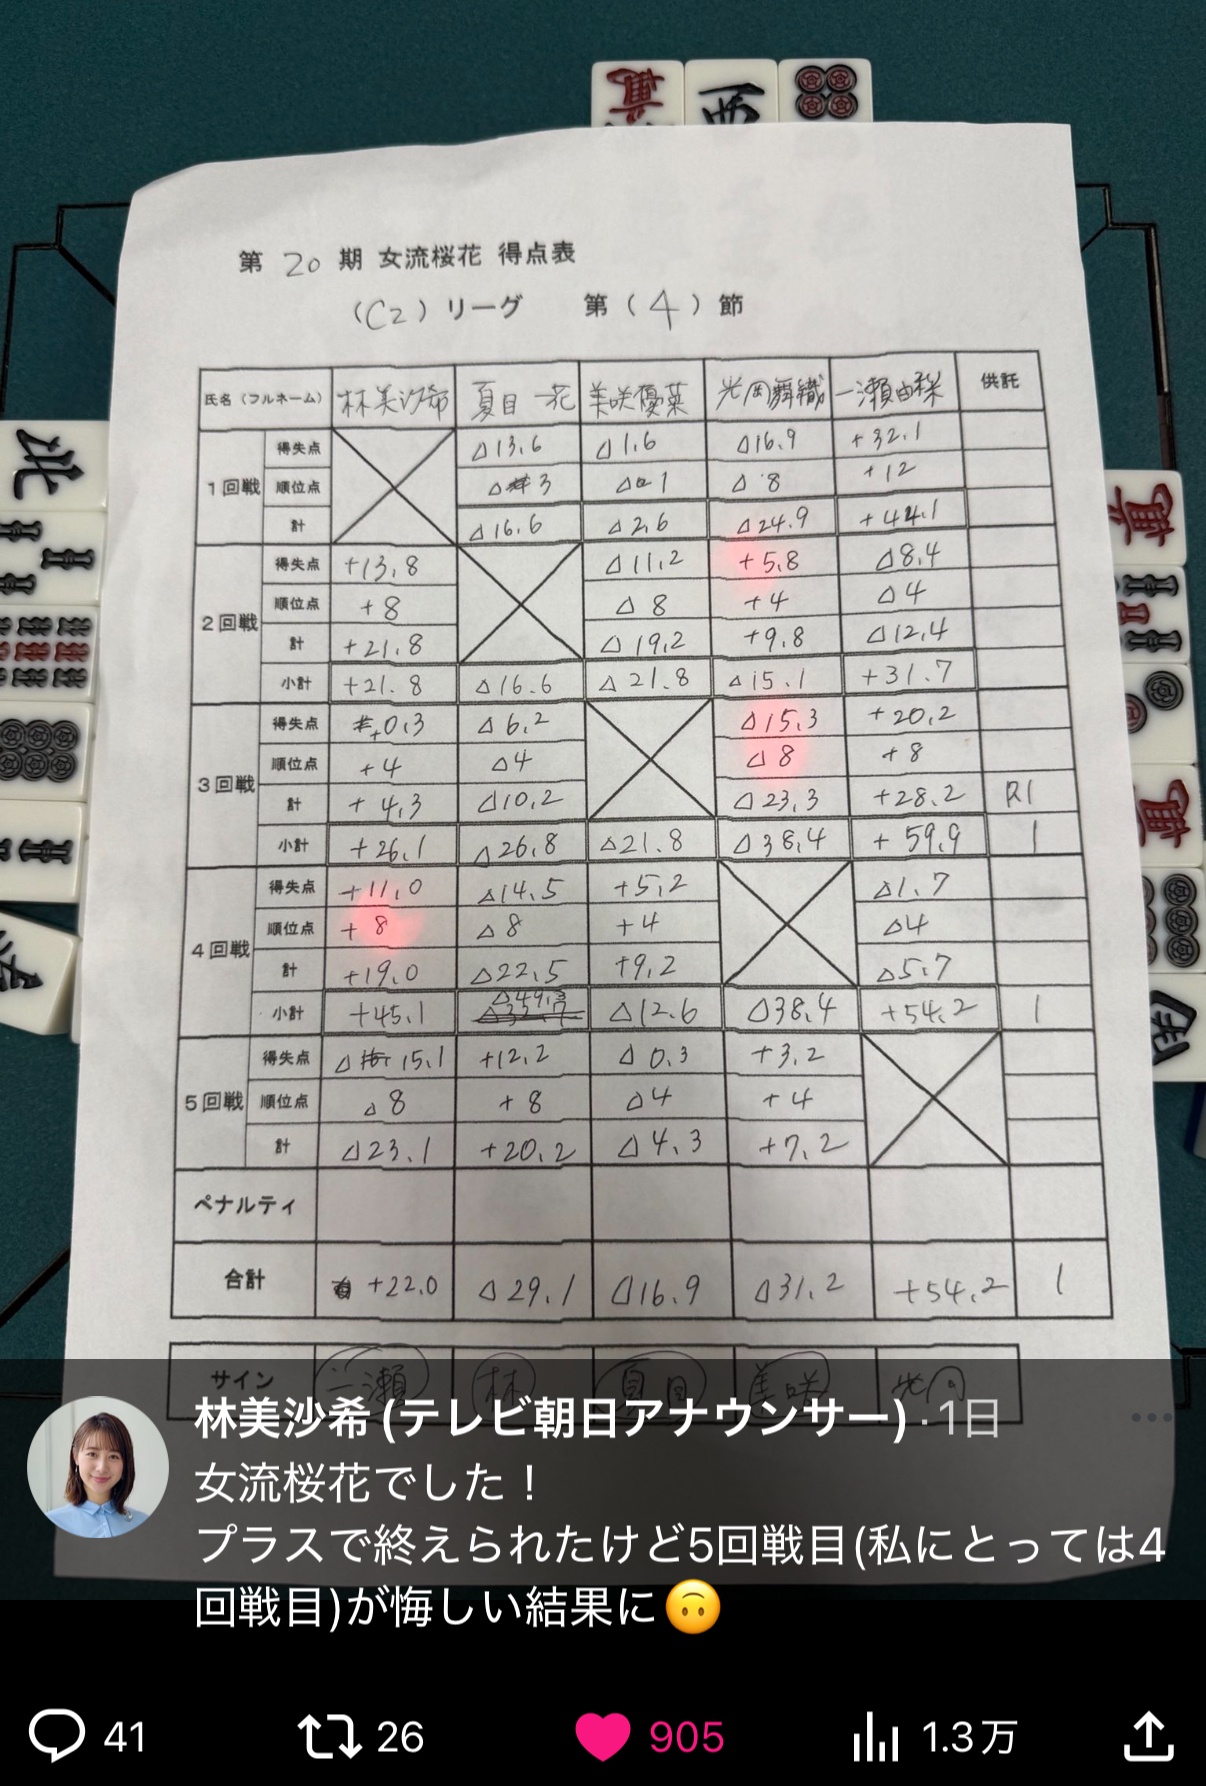 第 20 期 女流桜花 得点表
(C2) リーグ 第 (4) 節
氏名 (フルネーム) 林美沙希 夏目一花 美咲優菜 光岡舞織 一瀬由梨 供託
1回戦
得失点 △13.6 △1.6 △16.9 +32.1
順位点 △3 △1 △8 +12
計 △16.6 △2.6 △24.9 +44.1
2回戦
得失点 +13.8 △11.2 +5.8 △8.4
順位点 +8 △8 +4 △4
計 +21.8 △19.2 +9.8 △12.4
小計 +21.8 △16.6 △21.8 △15.1 +31.7
3回戦
得失点 +0.3 △6.2 △15.3 +20.2
順位点 +4 △4 △8 +8
計 +4.3 △10.2 △23.3 +28.2 R1
小計 +26.1 △26.8 △21.8 △38.4 +59.9 1
4回戦
得失点 +11.0 △14.5 +5.2 △1.7
順位点 +8 △8 +4 △4
計 +19.0 △22.5 +9.2 △5.7
小計 +45.1 △49.3 △12.6 △38.4 +54.2 1
5回戦
得失点 △15.1 +12.2 △0.3 +3.2
順位点 △8 +8 △4 +4
計 △23.1 +20.2 △4.3 +7.2
ペナルティ
合計 +22.0 △29.1 △16.9 △31.2 +54.2 1
サイン 一瀬 林 夏目 美咲 光岡
林美沙希(テレビ朝日アナウンサー)·1日
女流桜花でした！
プラスで終えられたけど5回戦目(私にとっては4
回戦目)が悔しい結果に🙃
41 26 905 1.3万
北
西
萬